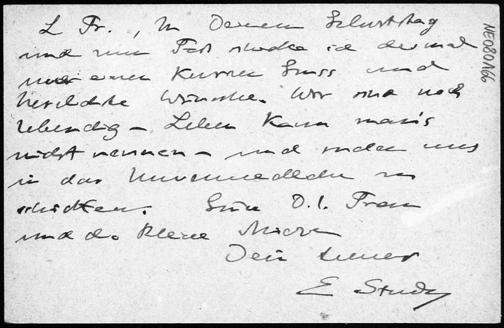 L Fr., Zu Deinem Geburtstag
und zum Fest sende ich diesmal
nur einen kurzen Gruss und
herzlichste Wünsche. Wir sind noch
lebendig – Leben kann man's
nicht nennen – und suchen uns
in das Unvermeidliche zu
schicken. Grüss D. l. Frau
und d. kleine
Dein
E Study
NE080A66